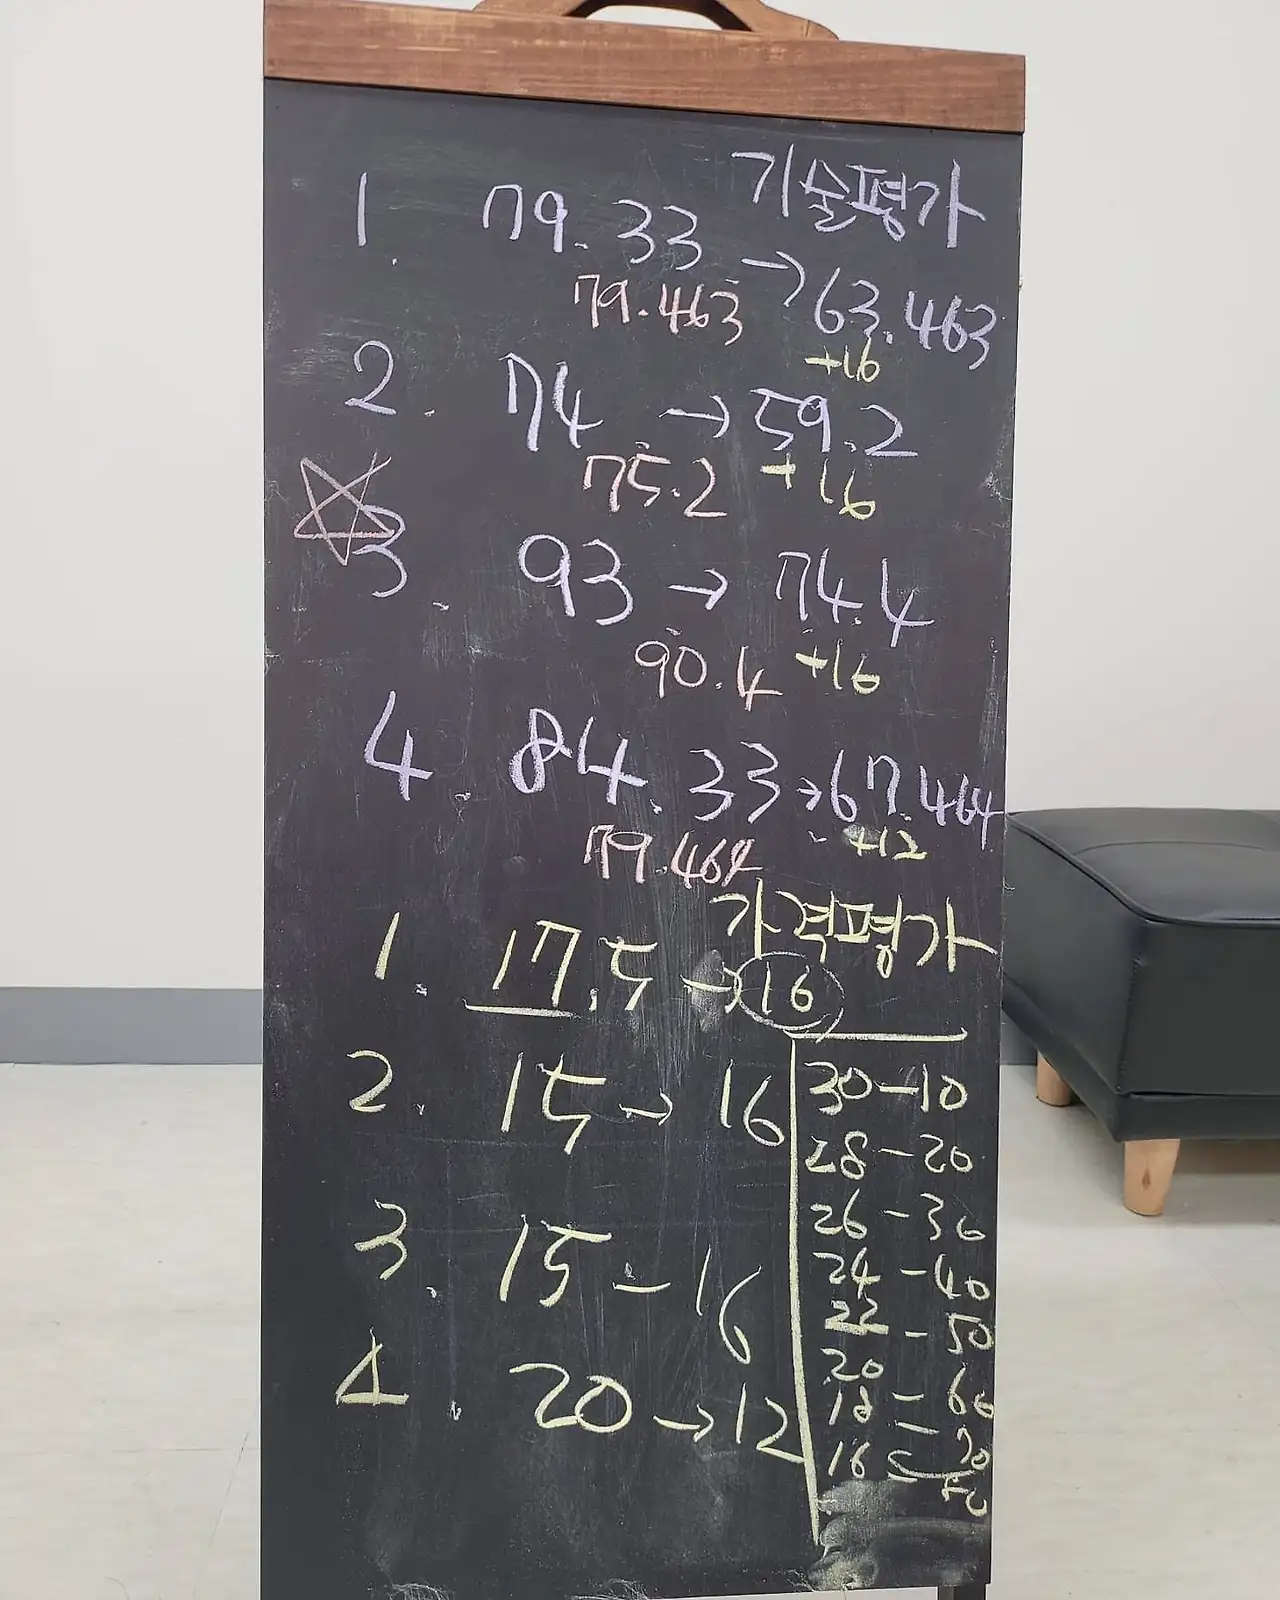 기술평가
1. 79.33 → 63.463
79.463 +16
2. 74 → 59.2
75.2 +16
3. 93 → 74.4
90.4 +16
4. 84.33 → 67.464
79.464 +12
가격평가
1. 17.5 → 16
2. 15 → 16
3. 15 - 16
4. 20 → 12
30-10
28-20
26-30
24-40
22-50
20
18-60
16 70
80